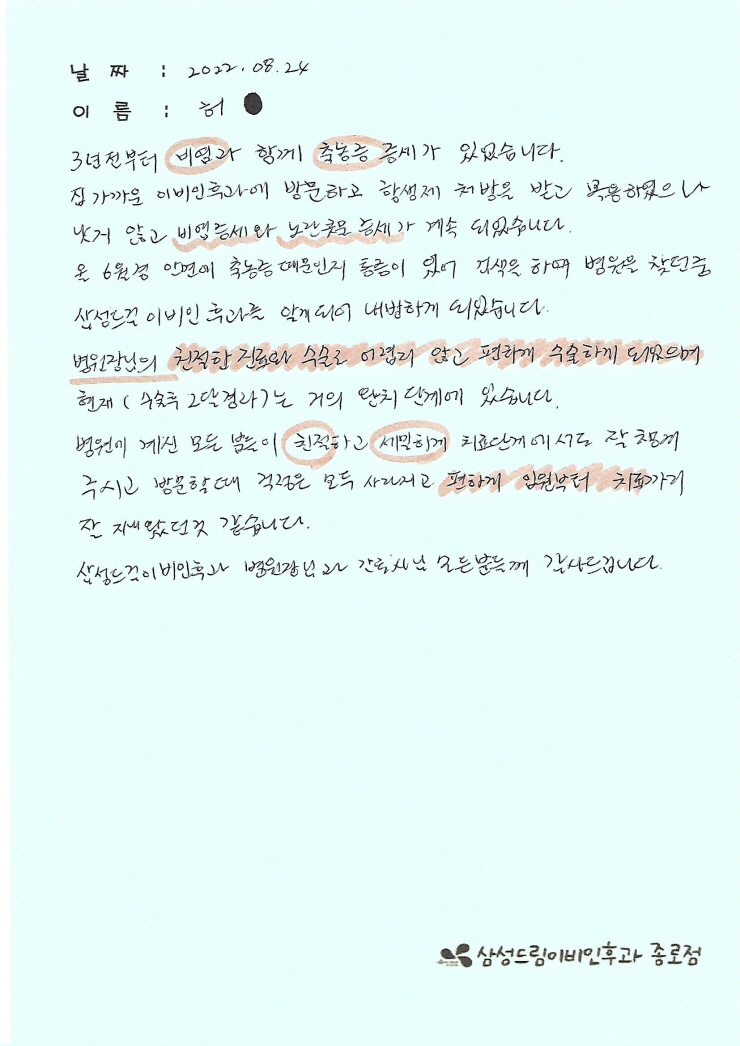 날 짜 : 2022. 08. 24
이 름 : 허
3년전부터 비염과 함께 축농증 증세가 있었습니다.
집 가까운 이비인후과에 방문하고 항생제 처방을 받고 복용하였으나
낫거 않고 비염증세와 노란콧물 증세가 계속 되었습니다.
올 6월경 안면에 축농증때문인지 통증이 있어 검색을 하며 병원을 찾던중
삼성드림이비인후과를 알게되어 내방하게 되었습니다.
병원장님의 친절한 진료와 수술로 어렵지 않고 편하게 수술하게 되었으며
현재 (수술후 2달경과)는 거의 완치단계에 있습니다.
병원에 계신 모든 분들이 친절하고 세밀하게 치료단계에서도 잘 챙겨
주시고 방문할때 걱정은 모두 사라지고 편하게 입원부터 치료까지
잘 지내왔던것 같습니다.
삼성드림이비인후과 병원장님과 간호사님 모든분들께 감사드립니다.
삼성드림이비인후과 종로점